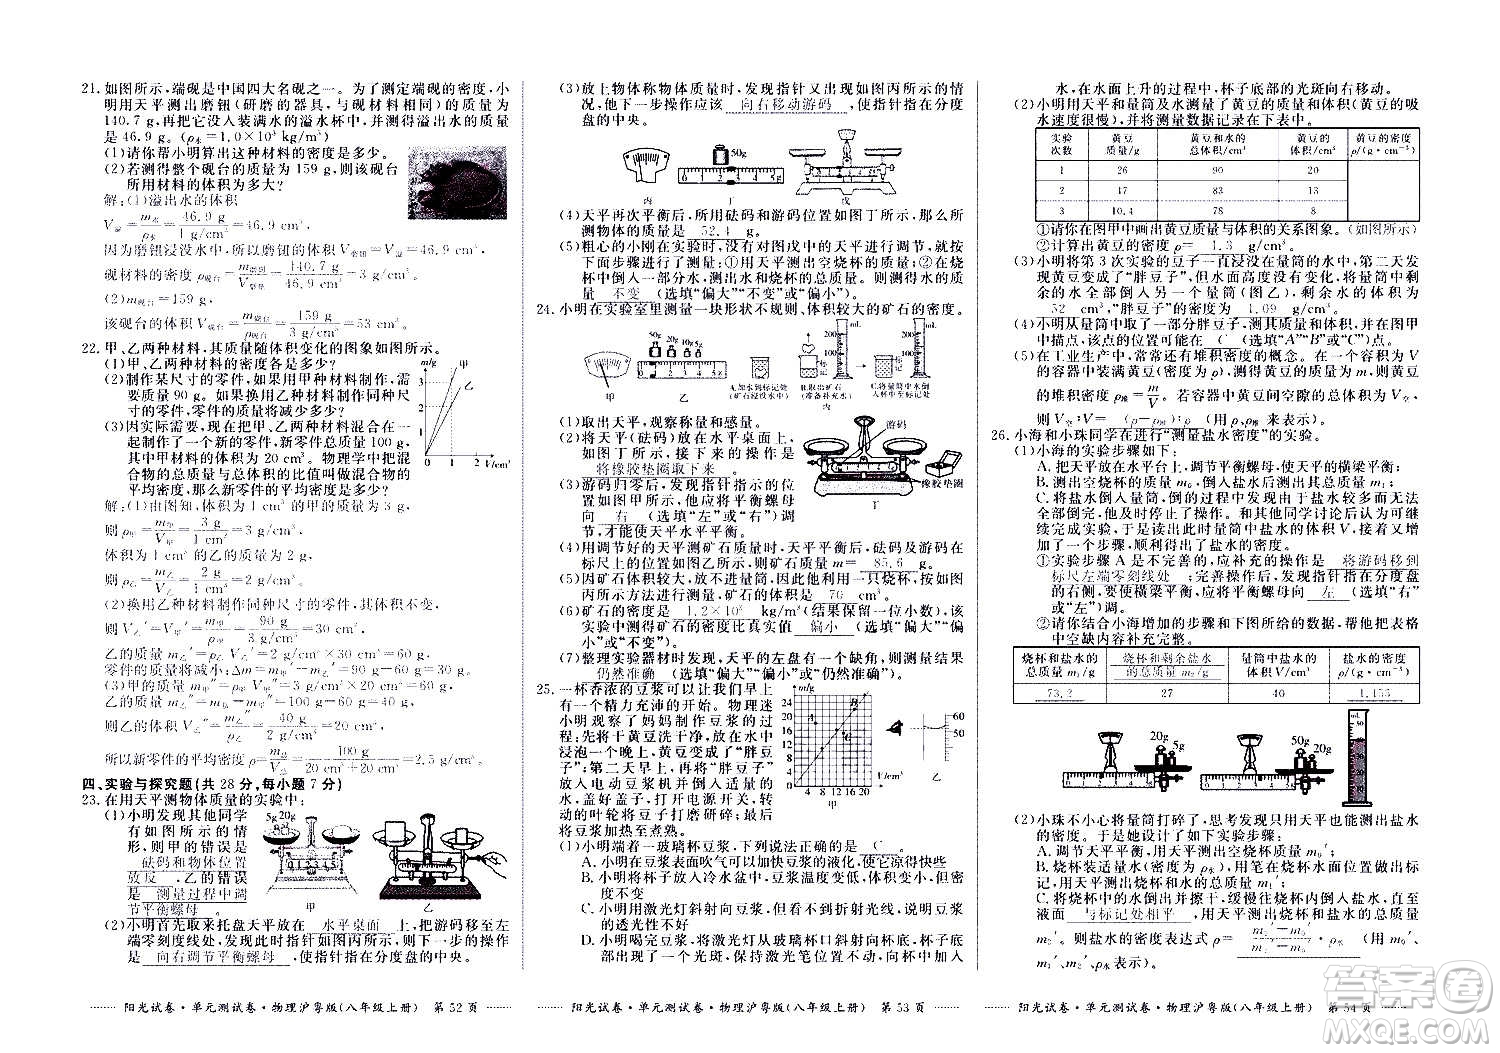 21. 如图所示,端砚是中国四大名砚之一。为了测定端砚的密度,小
明用天平测出磨钮(研磨的器具,与砚材料相同)的质量为
140.7 g,再把它没入装满水的溢水杯中,并测得溢出水的质量
是 46.9 g。(ρ水=1.0×10³ kg/m³)
(1)请你帮小明算出这种材料的密度是多少。
(2)若测得整个砚台的质量为 159 g,则该砚台
所用材料的体积为多大?
解:(1)溢出水的体积
V溢=m水/ρ水=46.9 g/1 g/cm³=46.9 cm³
因为磨钮浸没水中,所以磨钮的体积 V磨=V溢=46.9 cm³
(2)m砚台=159 g,
22. 甲、乙两种材料,其质量随体积变化的图象如图所示。
(1)甲、乙两种材料的密度各是多少?
(2)制作某尺寸的零件,如果用甲种材料需要
质量 90 g。如果换用乙种材料制作同种尺
寸的零件,零件的质量将减少多少?
(3)因实际需要,现在把甲、乙两种材料混合在一
起制作了一个新的零件,新零件总质量 100 g,
其中甲材料的体积为 20 cm³。物理学中把混
合物的总质量与总体积的比值叫做混合物的
平均密度,那么新零件的平均密度是多少?
m/g
3
2
1
0 1 2 V/cm³
解:(1)由图知,体积为 1 cm³ 的甲的质量为 3 g,
则 ρ甲=m甲/V甲=3 g/1 cm³=3 g/cm³
体积为 1 cm³ 的乙的质量为 2 g,
则 ρ乙=m乙/V乙=2 g/1 cm³=2 g/cm³
(2)换用乙种材料制作同种零件,其体积不变,
则 V乙′=V甲′=90 g/3 g/cm³=30 cm³
零件的质量将减小:Δm=m甲′−m乙′=90 g−60 g=30 g
乙的质量 m乙″=m总−m甲″=100 g−60 g=40 g
则乙的体积 V乙″=m乙″/ρ乙=40 g/2 g/cm³=20 cm³
所以新零件的平均密度 ρ=m总/V总=100 g/20 cm³+20 cm³=2.5 g/cm³
四、实验与探究题(共 28 分,每小题 7 分)
23. 在用天平测物体质量的实验中:
(1)小明发现其他同学
有如图所示的情
形,则甲的错误是
砝码和物体位置
放反,乙的错误
是 测量过程中调
节平衡螺母。
5g 20g
甲 乙
(2)小明首先取来托盘天平放在 水平桌面 上,把游码移至左
端零刻度线处,发现此时指针如图丙所示,则下一步的操作
是 向右调节平衡螺母,使指针指在分度盘的中央。
阳光试卷·单元测试卷·物理沪粤版(八年级上册) 第 52 页
(3)放上物体称物体质量时,发现指针又出现如图丙所示的情
况,此时下一步操作应该 向右移动游码,使指针指在分度
盘的中央。
50g
丙 丁 戊
(4)天平再次平衡后,所用砝码和游码位置如图丁所示,则所
测物体的质量为 52.4 g。
(5)粗心的小刚在实验时,没有对图戊中的天平进行调节,就按
下面步骤进行了测量:①用天平测出空烧杯的质量;②在烧
杯中倒入一部分水,测出水和烧杯的总质量。则测得水的质
量 不变 (选填“偏大”“不变”或“偏小”)。
24. 小明在实验室里测量一块形状不规则、体积较大的矿石的密度。
甲 乙 丙
A.加水到标记处(矿石浸没水中)
B.取出矿石(准备补充水)
C.将量筒中水倒入杯中至标记处
(1)取出天平,观察称量和感量。
(2)将天平(砝码)放在水平桌面上,
如图丁所示,接下来的操作是
将橡胶垫圈取下来。
(3)游码归零后,发现指针指示的位
置如图甲所示,他应将平衡螺母
向 右 (选填“左”或“右”)调节,
使得天平水平平衡。
游码
橡胶垫圈
丁
(4)用调节好的天平测矿石质量时,天平平衡后,砝码及游码在
标尺上的位置如图乙所示,则矿石质量 m= 85.6 g。
(5)因矿石体积较大,放不进量筒,因此他利用一只烧杯,按如图
丙所示方法进行测量,矿石的体积是 70 cm³。
(6)矿石的密度是 1.2×10³ kg/m³(结果保留一位小数),该
实验中测得矿石的密度与真实值 偏小 (选填“偏大”“偏
小”或“不变”)。
(7)整理实验器材时发现,天平的左盘有一个缺角,则测量结果
仍然准确 (选填“偏大”“偏小”或“仍然准确”)。
25. 一杯香浓的豆浆可以让我们早上
有一个精力充沛的开始。物理迷
小明观察了妈妈制作豆浆的过
程:先将干黄豆洗干净,在水中
浸泡一个晚上,黄豆变成了“胖豆
子”;第二天早上把“胖豆子”
放入电动豆浆机并倒入适量的
水,盖好盖子,打开电源开关,高速转动
的叶轮将豆子打磨研碎;最后
将豆浆加热至煮熟。
甲 乙
(1)小明端着一玻璃杯豆浆,下列说法正确的是 C。
A. 小明在豆浆表面吹气可以加快豆浆的液化,使它凉得快些
B. 小明将杯子放入冷水盆中,豆浆温度变低,分子间
距不变
C. 小明用激光灯斜射向豆浆,没有看到折射光线,说明豆浆
的透光性不好
D. 小明喝完豆浆,将激光灯从玻璃杯口斜射入杯中,在杯子底
部出现了一个光斑,保持激光位置不变,向杯中缓慢加入
阳光试卷·单元测试卷·物理沪粤版(八年级上册) 第 53 页
水,在水面上升的过程中,杯子底部的光斑向右移动。
(2)小明用天平和量筒及水测量了黄豆的质量和体积(黄豆的吸
水速度很慢),并将测量数据记录在下表中。
实验次数 黄豆质量/g 黄豆和水的总体积/cm³ 黄豆的体积/cm³ 黄豆的密度ρ/(g·cm⁻³)
1 26 90 20
2 17 83 13
3 10.4 78 8
①请你在图甲中画出黄豆质量与体积的关系图象。(如图所示)
②计算出黄豆的密度 ρ= 1.3 g/cm³。
(3)小明将第 3 次实验的豆子一直浸没在量筒的水中,第二天发
现黄豆变成了“胖豆子”,但水面高度没有变化,将量筒中剩
余的水全部倒入另一个量筒(图乙),剩余水的体积为
52 cm³,“胖豆子”的密度为 1.09 g/cm³。
(4)小明从量筒中取了一部分胖豆子,测其质量和体积并在图甲
中描点,该点的位置可能在 C (选填“A”“B”或“C”)点。
(5)在工业生产中,常常还有堆积密度的概念。在一个体积为 V
的容器中装满黄豆(密度为 ρ),测得黄豆的质量为 m,则黄豆
的堆积密度 ρ堆=m/V。若容器中黄豆间空隙的总体积为 V空,
则 V空:V= (ρ−ρ堆):ρ (用 ρ、ρ堆 来表示)。
26. 小海和小珠同学在进行“测量盐水密度”的实验。
(1)小海的实验步骤如下:
A. 把天平放在水平台上,调节平衡螺母,使天平的横梁平衡;
B. 测出空烧杯的质量 m₀,倒入适量盐水后测出总质量 m₁;
C. 将盐水倒入量筒,倒的过程中发现盐水较多而无法
全部倒完,于是及时停止了操作。和其他同学讨论后认为可继
续完成实验,于是读出此时量筒中盐水的体积 V,接着又增加
了一个步骤,顺利得出了盐水的密度。
①实验步骤 A 是不完善的,应补充的操作是 将游码移到
标尺左端零刻线处;完善操作后,发现指针指在分度盘
的右侧,要使横梁平衡,应将平衡螺母向 左 (选填“右”
或“左”)调。
②请你结合小海增加的步骤和下图所给的数据,将表格
中空缺内容补充完整。
烧杯和盐水的总质量 m₁/g 烧杯和剩余盐水的总质量 m₂/g 量筒中盐水的体积V/cm³ 盐水的密度ρ/(g·cm⁻³)
73.2 27 40 1.155
(2)小珠不小心将量筒打碎了,思考发现只用天平也能测量出盐水
的密度。于是她设计了如下实验步骤:
A. 调好天平,用天平测出空烧杯质量 m₀′。
B. 烧杯装适量水(密度为 ρ水),用笔在烧杯水面位置作一标
记,用天平测出烧杯和水的总质量 m₁′。
C. 将烧杯中的水倒出并擦干,缓慢往烧杯内倒入盐水,直至
液面 与标记处相平,用天平测出烧杯和盐水的总质量
m₂′。则盐水的密度表达式 ρ= m₂′−m₀′/m₁′−m₀′·ρ水 (用 m₀′、
m₁′、m₂′、ρ水 表示)。
阳光试卷·单元测试卷·物理沪粤版(八年级上册) 第 54 页